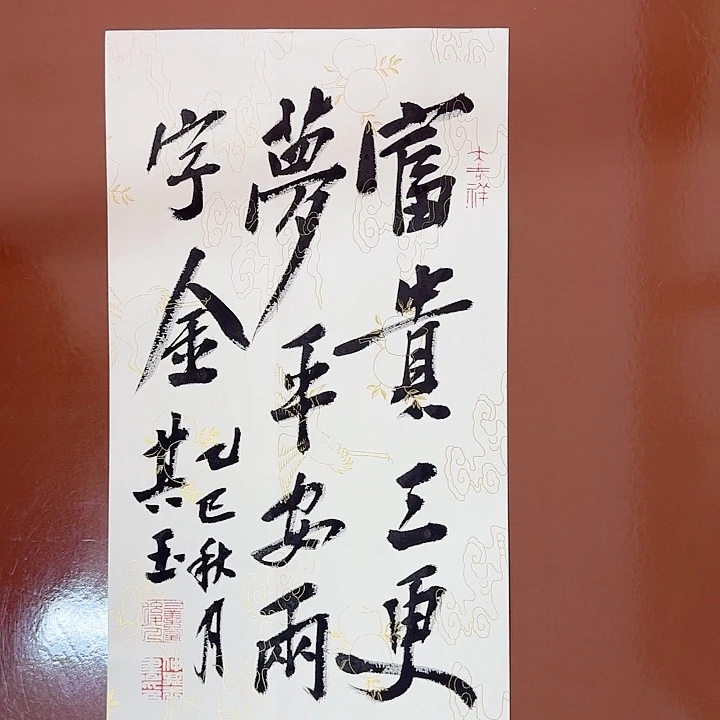 富貴三更
夢平安兩
字金
乙巳秋月
其玉
大吉祥